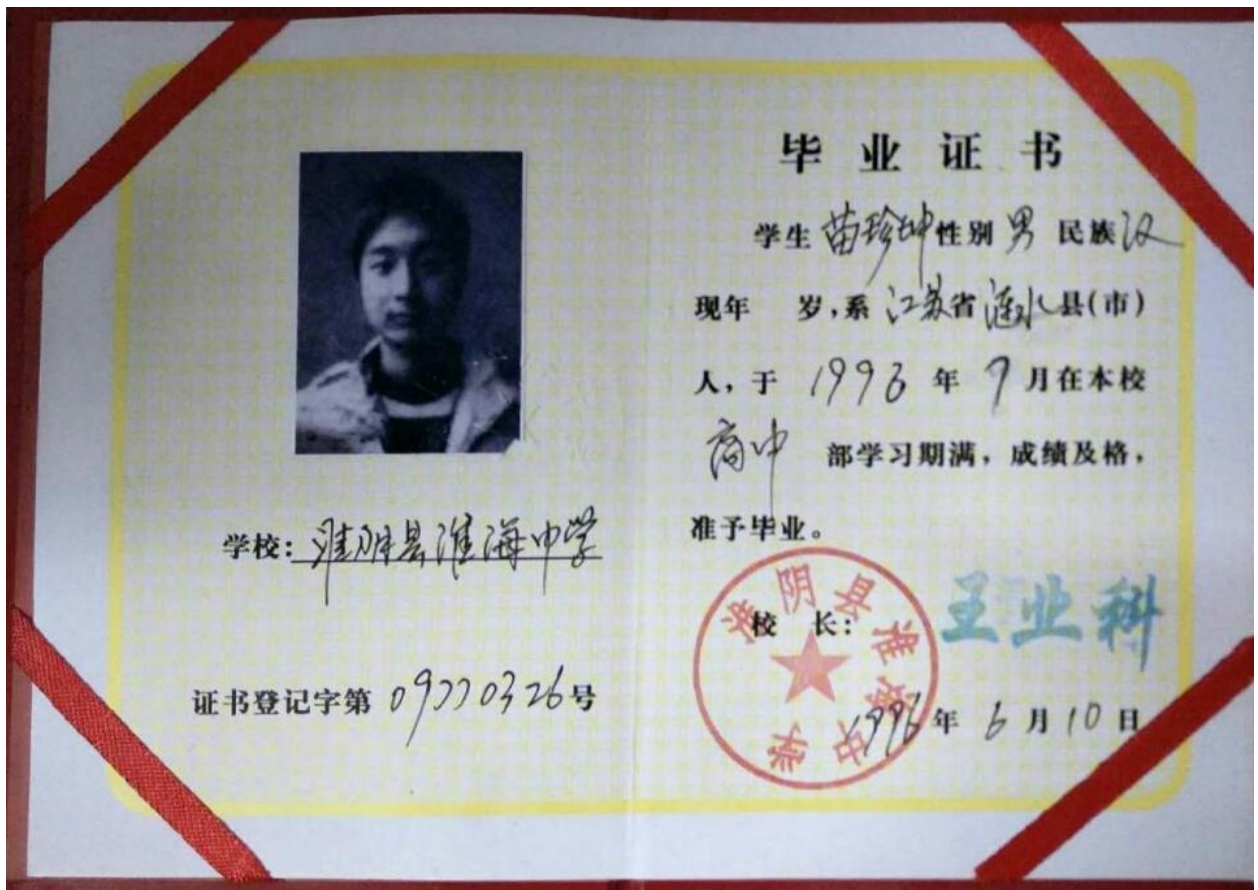 学校：淮阴县淮海中学
证书登记字第 09770326 号
毕业证书
学生 苗珍坤 性别 男 民族 汉
现年 岁，系 江苏省 涟水 县(市)
人，于 1996 年 9 月在本校
高中 部学习期满，成绩及格，
准予毕业。
校 长： 王业科
淮阴县淮海中学
1996 年 6 月 10 日